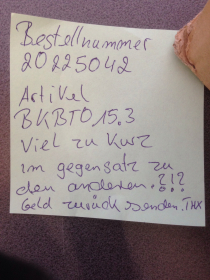 Bestellnummer
20225042
Artikel
BKBTO15.3
Viel zu Kurz
im gegensatz zu
den anderen.?!?
Geld zurück senden. THX